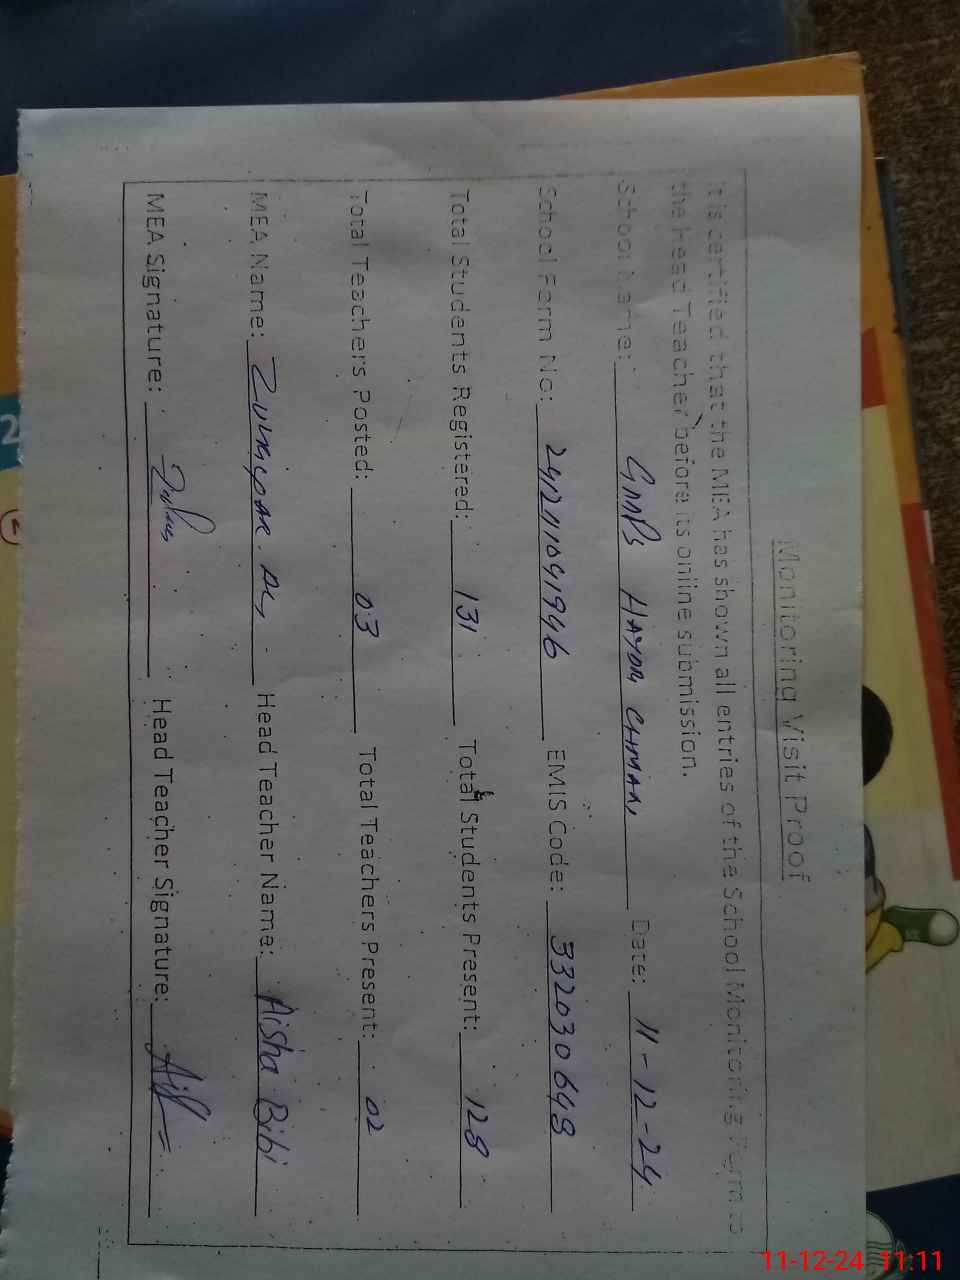 Monitoring Visit Proof
It is certified that the MEA has shown all entries of the School Monitoring Form to
the head Teacher before its online submission.
School Name: GMPS HAYDR CHMAN Date: 11-12-24
School Form No: 241211041946 EMIS Code: 33203064
Total Students Registered: 131 Total Students Present: 128
Total Teachers Posted: 03 Total Teachers Present: 02
MEA Name: Head Teacher Name: Aisha Bibi
MEA Signature: Head Teacher Signature:
2
11-12-24 11:11